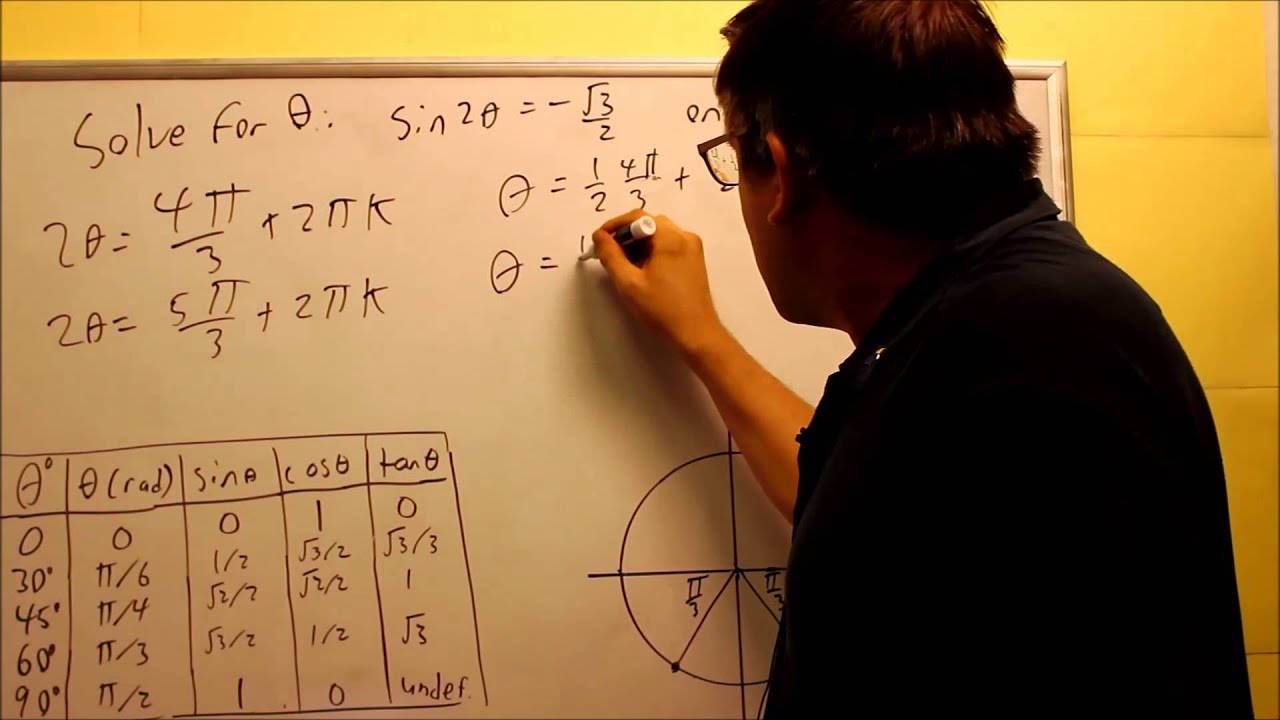 Solve for θ: sin2θ = -√3/2 on
2θ = 4π/3 + 2πk
2θ = 5π/3 + 2πk
θ = 1/2 4π/3 +
θ =
θ° θ(rad) sinθ cosθ tanθ
0 0 0 1 0
30° π/6 1/2 √3/2 √3/3
45° π/4 √2/2 √2/2 1
60° π/3 √3/2 1/2 √3
90° π/2 1 0 undef.
π/3